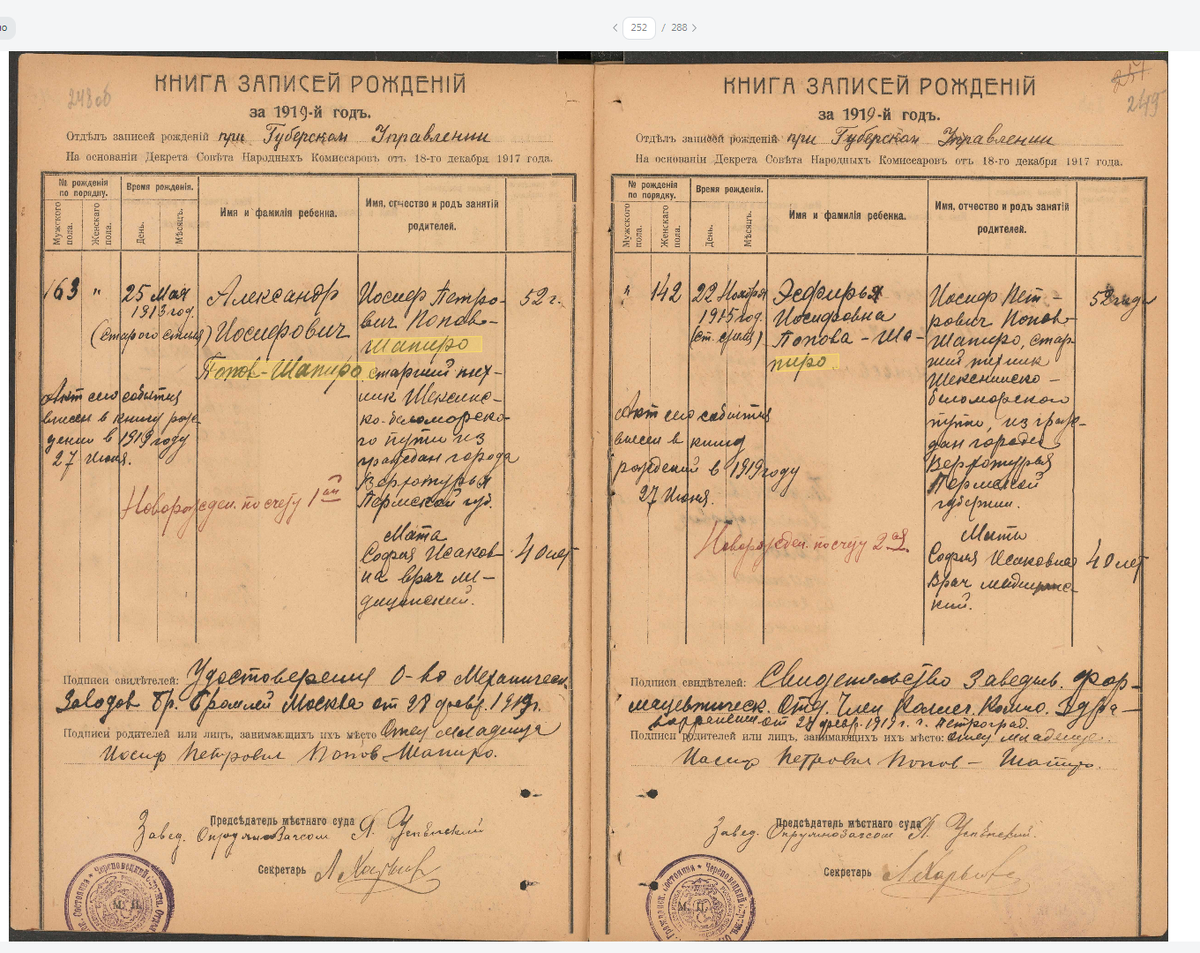 252 / 288
248об
КНИГА ЗАПИСЕЙ РОЖДЕНІЙ
за 1919-й годъ.
Отдѣлъ записей рожденій при Губерском Управлении
На основаніи Декрета Совѣта Народныхъ Комиссаровъ отъ 18-го декабря 1917 года.
№ рожденія по порядку.
Мужского пола.
Женскаго пола.
Время рожденія.
День.
Мѣсяцъ.
Имя и фамилія ребенка.
Имя, отчество и родъ занятій родителей.
163
"
25 Мая
1913 год.
(старого стиля)
Александр
Иосифович
Попов-Шапиро
Иосиф Петро-
вич Попов-
Шапиро
старший тех-
ник Шекснинс-
ко-беломорско-
го пути из
граждан города
Верхотурья
Пермской губ.
52 г.
Мата
София Исаков-
на врач ме-
дицинский.
40 лет
Акт сего события
внесен в книгу рож-
дений в 1919 году
27 Июня.
Новорожден. по счету 1ый
Подписи свидѣтелей: Удостоверения О-ва Механическ.
Заводов Бр. Бромлей Москва от 28 февр. 1919г.
Подписи родителей или лицъ, занимающихъ ихъ мѣсто Отец младенца
Иосиф Петрович Попов-Шапиро.
Предсѣдатель мѣстнаго суда
Завед. Успенский
Секретарь
М. П.
249
КНИГА ЗАПИСЕЙ РОЖДЕНІЙ
за 1919-й годъ.
Отдѣлъ записей рожденій при Губерском Управлении
На основаніи Декрета Совѣта Народныхъ Комиссаровъ отъ 18-го декабря 1917 года.
№ рожденія по порядку.
Мужского пола.
Женскаго пола.
Время рожденія.
День.
Мѣсяцъ.
Имя и фамилія ребенка.
Имя, отчество и родъ занятій родителей.
"
142
22 Ноября
1915 год.
(ст. стиля)
Эсфирья
Иосифовна
Попова - Ша-
пиро
Иосиф Пет-
рович Попов-
Шапиро, стар-
ший техник
Шекснинско-
беломорского
пути, из граж-
дан города
Верхотурья
Пермской
губернии.
52 года
Мать
София Исаковна
Врач медицинс-
кий.
40 лет
Акт сего события
внесен в книгу
рождений в 1919 году
27 Июня.
Новорожден. по счету 2ая
Подписи свидѣтелей: Свидетельство Заведыв. Фар-
мацевтическ. Отд. Член Коллег. Комис. Здра-
воохранения от 28 февр. 1919 г. г. Петроград.
Подписи родителей или лицъ, занимающихъ ихъ мѣсто: Отец младенца.
Иосиф Петрович Попов - Шапиро.
Предсѣдатель мѣстнаго суда
Завед. Успенский.
Секретарь
М. П.